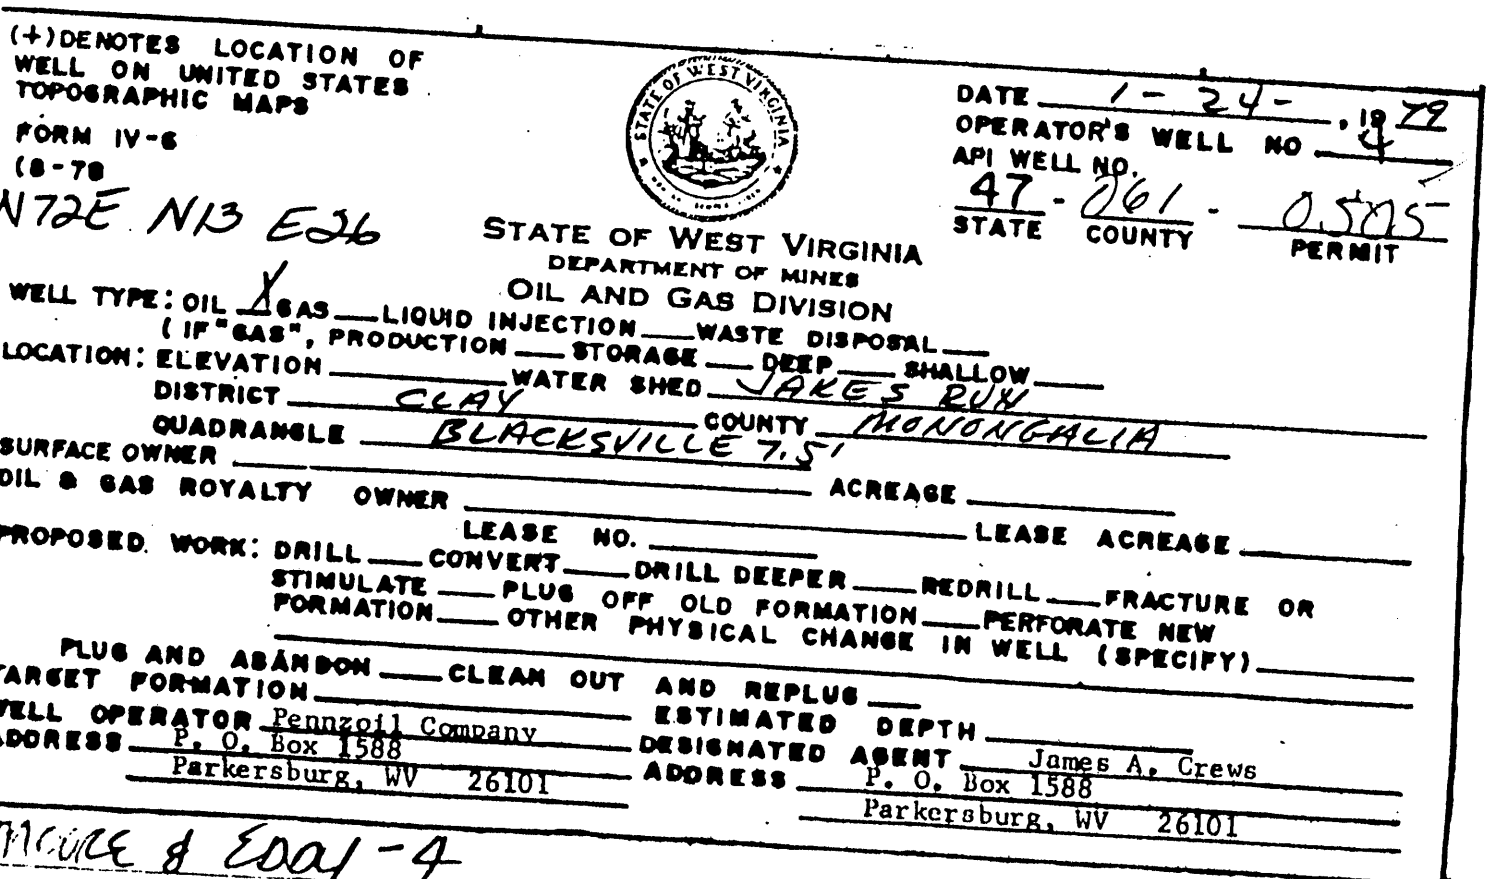 (+)DENOTES LOCATION OF
WELL ON UNITED STATES
TOPOGRAPHIC MAPS
FORM IV-6
(8-78
N72E N13 E26
STATE OF WEST VIRGINIA
STATE OF WEST VIRGINIA
DEPARTMENT OF MINES
OIL AND GAS DIVISION
DATE 1-24-, 1979
OPERATOR'S WELL NO 4
API WELL NO.
47 - 061 - 0505
STATE COUNTY PERMIT
WELL TYPE: OIL X GAS LIQUID INJECTION WASTE DISPOSAL
(IF "GAS", PRODUCTION STORAGE DEEP SHALLOW
LOCATION: ELEVATION WATER SHED JAKES RUN
DISTRICT CLAY COUNTY MONONGALIA
QUADRANGLE BLACKSVILLE 7.5'
SURFACE OWNER ACREAGE
OIL & GAS ROYALTY OWNER LEASE ACREAGE
LEASE NO.
PROPOSED WORK: DRILL CONVERT DRILL DEEPER REDRILL FRACTURE OR
STIMULATE PLUG OFF OLD FORMATION PERFORATE NEW
FORMATION OTHER PHYSICAL CHANGE IN WELL (SPECIFY)
PLUG AND ABANDON CLEAN OUT AND REPLUG
TARGET FORMATION ESTIMATED DEPTH
WELL OPERATOR Pennzoil Company DESIGNATED AGENT James A. Crews
ADDRESS P. O. Box 1588 ADDRESS P. O. Box 1588
Parkersburg, WV 26101 Parkersburg, WV 26101
MOORE & EDDY -4